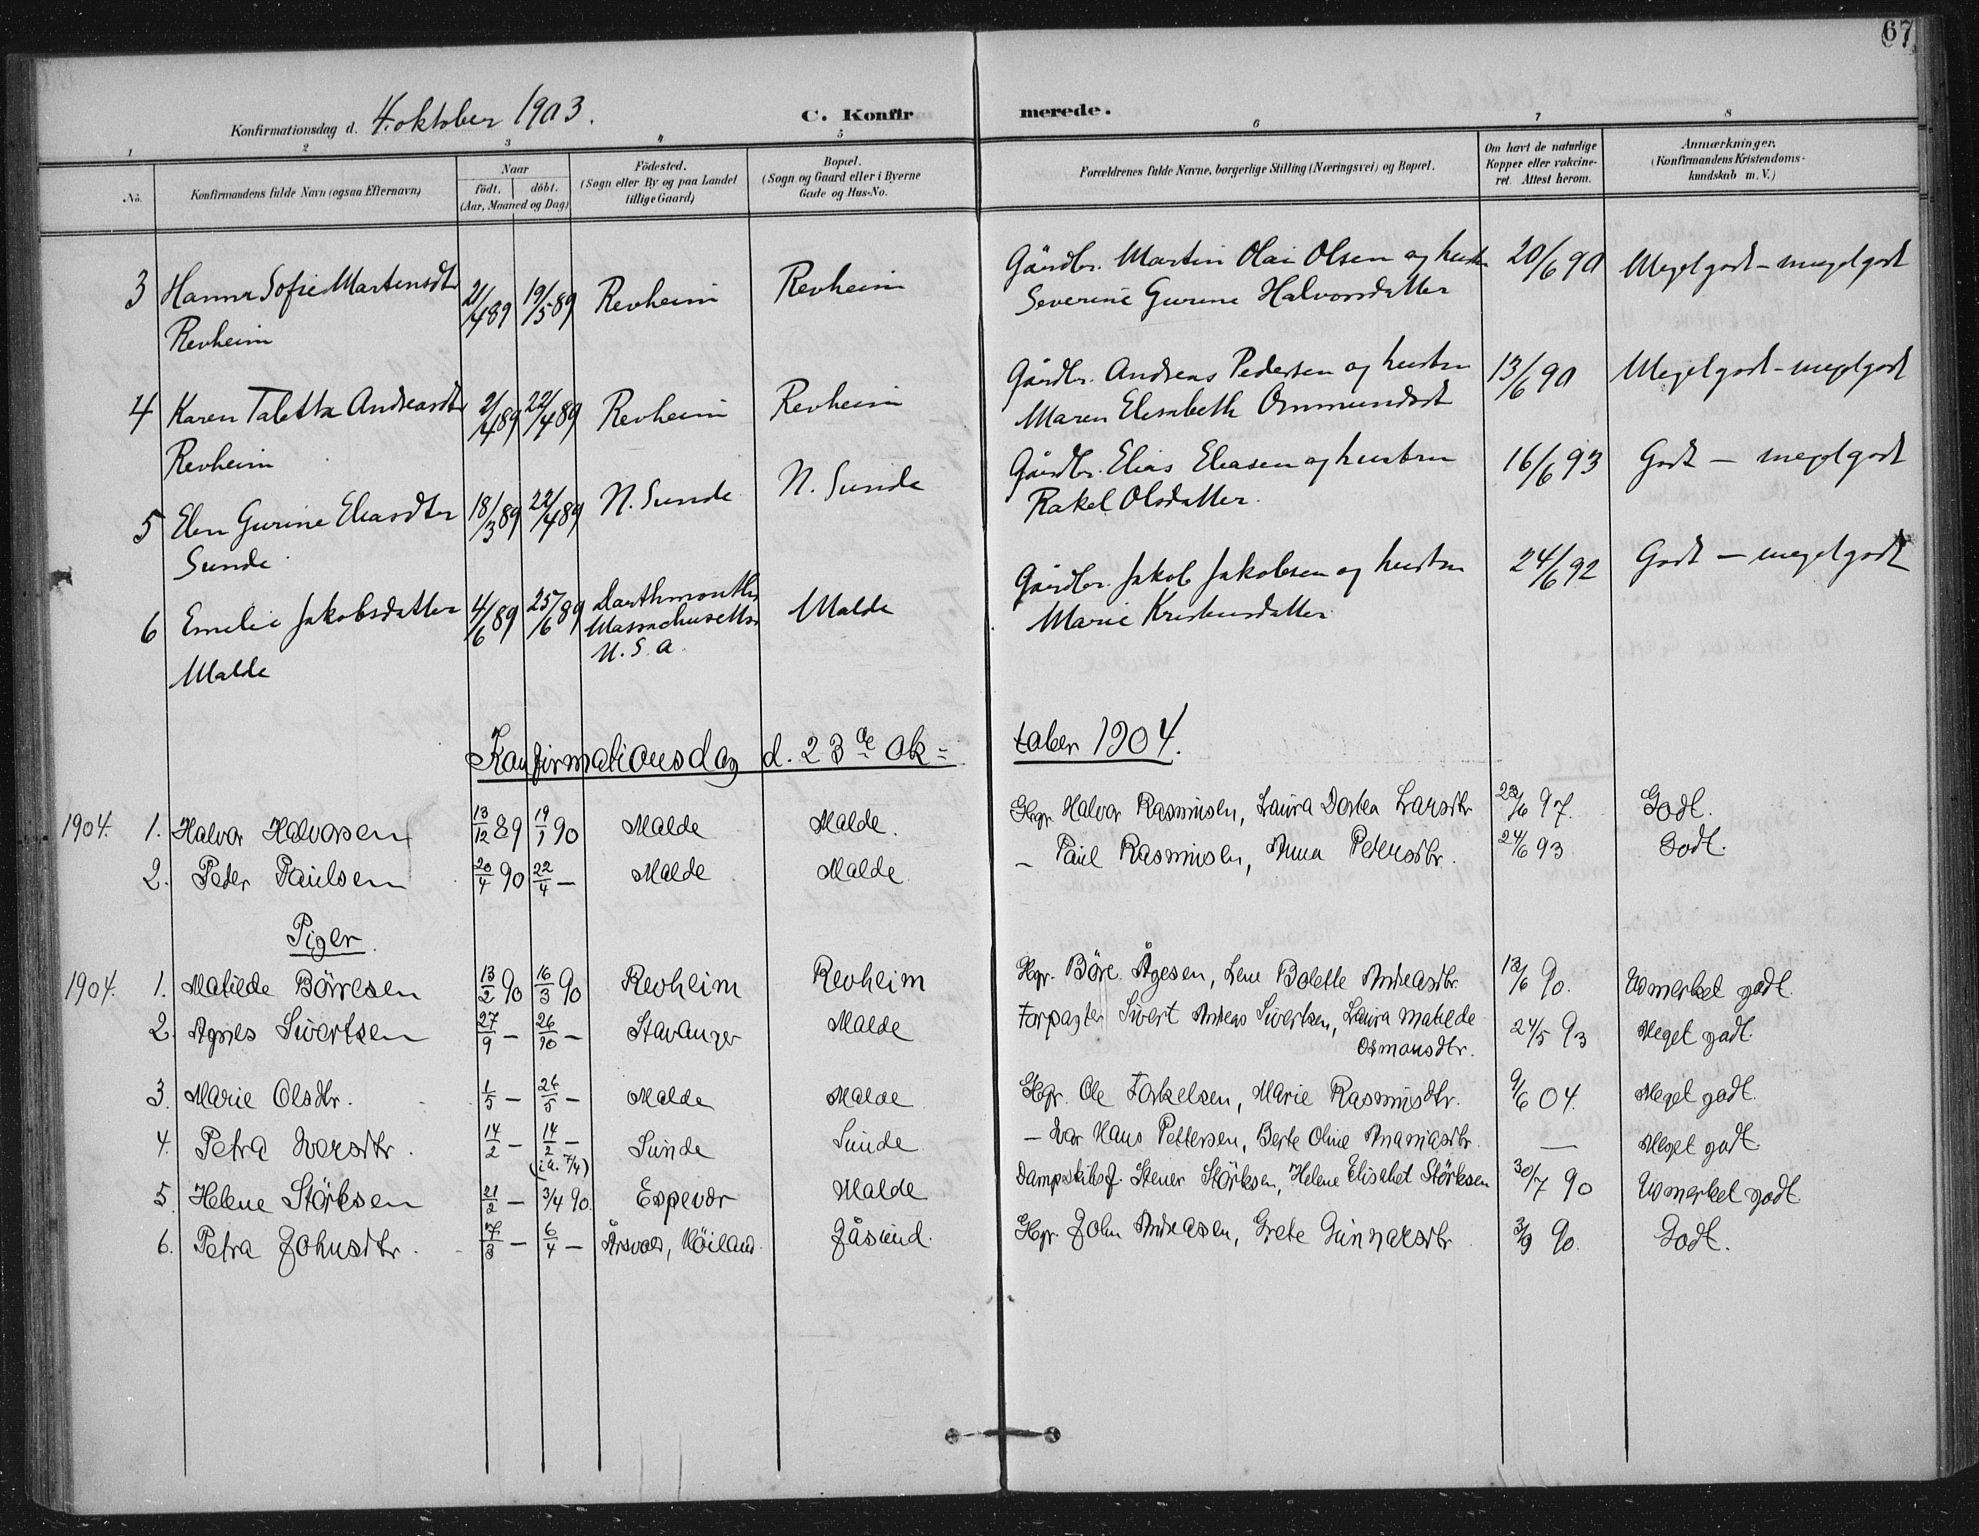 67
Konfirmationsdag d. 4. oktober 1903. C. Konfirmerede.
1 2 3 4 5 6 7 8
No. Konfirmandens fulde Navn (ogsaa Efternavn) Naar født. døbt. (Aar, Maaned og Dag) Födested. (Sogn eller By og paa Landet tillige Gaard) Bopæl. (Sogn og Gaard eller i Byerne Gade og Hus-No. Forældrenes fulde Navne, borgerlige Stilling (Næringsvei) og Bopæl. Om havt de naturlige Kopper eller vakcineret. Attest herom. Anmærkninger. (Konfirmandens Kristendomskundskab m. V.)
3 Hanna Sofie Martinsdtr 21/4 89 19/5 89 Revheim Revheim Gårdbr. Martin Olai Olsen og hustru 20/6 90 Megetgodt – megetgodt
Revheim Severine Gurine Halvorsdatter
4 Karen Taletta Andreasdtr 2/4 89 22/4 89 Revheim Revheim Gårdbr. Andreas Pedersen og hustru 13/6 90 Megetgodt – megetgodt
Revheim Maren Elisabeth Ommundsdt
5 Elen Gurine Eliasdter 18/3 89 22/4 89 N. Sunde N. Sunde Gårdbr. Elias Eliasen og hustru 16/6 93 Godt – megetgodt
Sunde Rakel Olsdatter
6 Emelie Jakobsdatter 4/6 89 25/6 89 Darthmouth, Malde Gårdbr. Jakob Jakobsen og hustru 24/6 92 Godt – megetgodt
Malde Massachusetts, Marie Kristensdatter
U. S. A.
Konfirmationsdag d. 23de Oktober 1904.
1904. 1. Halvor Halvorsen 13/12 89 19/1 90 Malde Malde. Gbr. Halvor Rasmusen, Laura Dortea Larsdtr 22/6 97. Godt.
2. Peder Paulsen 20/4 90 22/4 – Malde Malde – Paul Rasmusen, Anna Pedersdtr. 24/6 93 Godt.
Piger.
1904. 1. Matilde Börresen 13/2 90 16/3 90 Revheim Revheim Gbr. Böre Ågesen, Lene Bolette Andreasdtr. 13/6 90. Udmerket godt.
2. Agnes Sivertsen 27/9 – 26/10 – Stavanger Malde Forpagter Sivert Andreas Sivertsen, Laura Matilde 24/5 93 Meget godt.
Osmonsdtr.
3. Marie Olsdtr. 1/5 – 26/5 – Malde Malde Gbr. Ole Torkelsen, Marie Rasmusdtr. 9/6 04. Meget godt.
4. Petra Ivarsdtr. 14/2 – 14/2 – Sunde Sunde – Ivar Hans Pettersen, Berte Oline Ananiasdtr. — Meget godt.
(i k. 7/4)
5. Helene Störksen 21/2 – 3/4 90. Espevær Malde Dampskibsf. Stener Störksen, Helene Elisabet Störksen 30/7 90 Udmerket godt
6. Petra Johnsdtr. 7/3 – 6/4 – Årsvold, Höiland. Jåsund. Gbr. John Andreasen, Grete Gunnarsdtr 3/9 90. Godt.